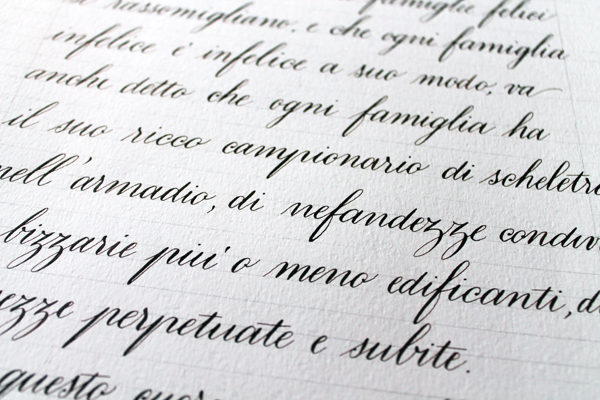 famiglie felici
si rassomigliano, e che ogni famiglia
infelice è infelice a suo modo, va
anche detto che ogni famiglia ha
il suo ricco campionario di scheletri
nell'armadio, di nefandezze condivi
bizzarie più o meno edificanti, di
ezze perpetuate e subite.
questo